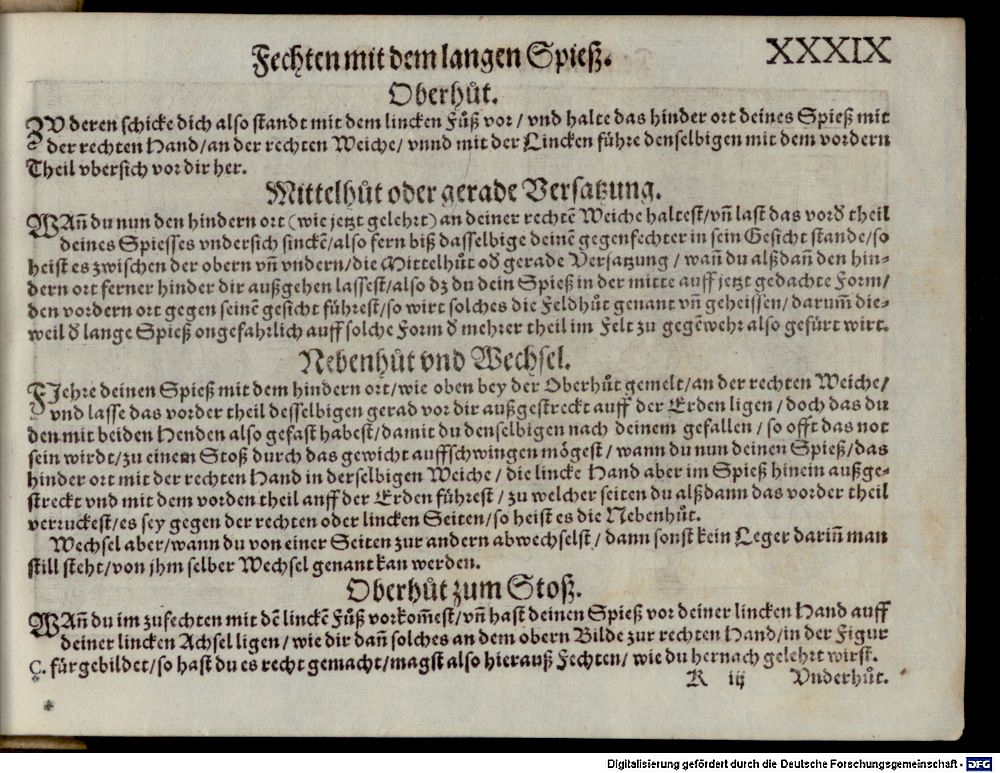 Fechten mit dem langen Spieß. XXXIX
Oberhůt.
ZV deren schicke dich also standt mit dem lincken Fůß vor / vnd halte das hinder ort deines Spieß mit
der rechten Hand/an der rechten Weiche/ vnnd mit der Lincken führe denselbigen mit dem vordern
Theil vbersich vor dir her.
Mittelhůt oder gerade Versatzung.
WAñ du nun den hindern ort (wie jetzt gelehrt) an deiner rechtẽ Weiche haltest/vñ last das vord̕ theil
deines Spiesses vndersich sinckẽ/also fern biß dasselbige deinẽ gegenfechter in sein Gesicht stande/so
heist es zwischen der obern vñ vndern/die Mittelhůt od̕ gerade Versatzung / wañ du alßdañ den hin-
dern ort ferner hinder dir außgehen lassest/also dz du dein Spieß in der mitte auff jetzt gedachte Form/
den vordern ort gegen seinẽ gesicht führest/so wirt solches die Feldhůt genant vñ geheissen/darum̃ die-
weil d̕ lange Spieß ongefahrlich auff solche Form d̕ mehrer theil im Felt zu gegẽwehr also gefürt wirt.
Nebenhůt vnd Wechsel.
FJehre deinen Spieß mit dem hindern ort/wie oben bey der Oberhůt gemelt/an der rechten Weiche/
vnd lasse das vorder theil desselbigen gerad vor dir außgestreckt auff der Erden ligen/doch das du
den mit beiden Henden also gefast habest/damit du denselbigen nach deinem gefallen / so offt das not
sein wirdt/zu einem Stoß durch das gewicht auffschwingen mögest / wann du nun deinen Spieß/das
hinder ort mit der rechten Hand in derselbigen Weiche / die lincke Hand aber im Spieß hinein außge-
streckt vnd mit dem vorden theil anff der Erden führest / zu welcher seiten du alßdann das vorder theil
verruckest/es sey gegen der rechten oder lincken Seiten/so heist es die Nebenhůt.
Wechsel aber/wann du von einer Seiten zur andern abwechselst / dann sonst kein Leger dariñ man
still steht/von jhm selber Wechsel genant kan werden.
Oberhůt zum Stoß.
WAñ du im zufechten mit dẽ linckẽ Fůß vorkom̃est/vñ hast deinen Spieß vor deiner lincken Hand auff
deiner lincken Achsel ligen / wie dir dañ solches an dem obern Bilde zur rechten Hand/in der Figur
C. fürgebildet/so hast du es recht gemacht/magst also hierauß Fechten/ wie du hernach gelehrt wirst.
K iij Vnderhůt.
Digitalisierung gefördert durch die Deutsche Forschungsgemeinschaft - DFG